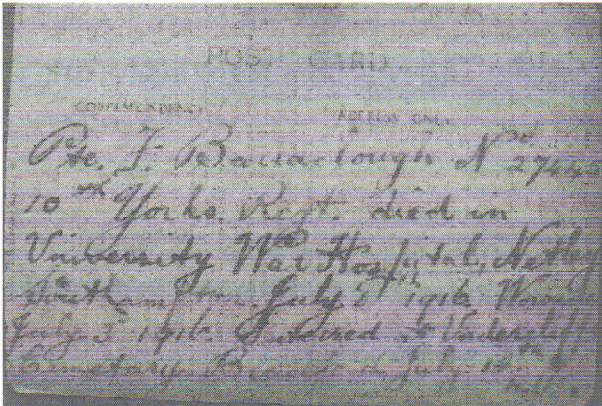 POST CARD
CORRESPONDENCE ADDRESS ONLY
Pte. F. Barraclough No 27440
10th Yorks. Regt. died in
University War Hospital, Netley
Southampton July 1916
July 3rd 1916. Interred at Undercliffe
Cemetary July